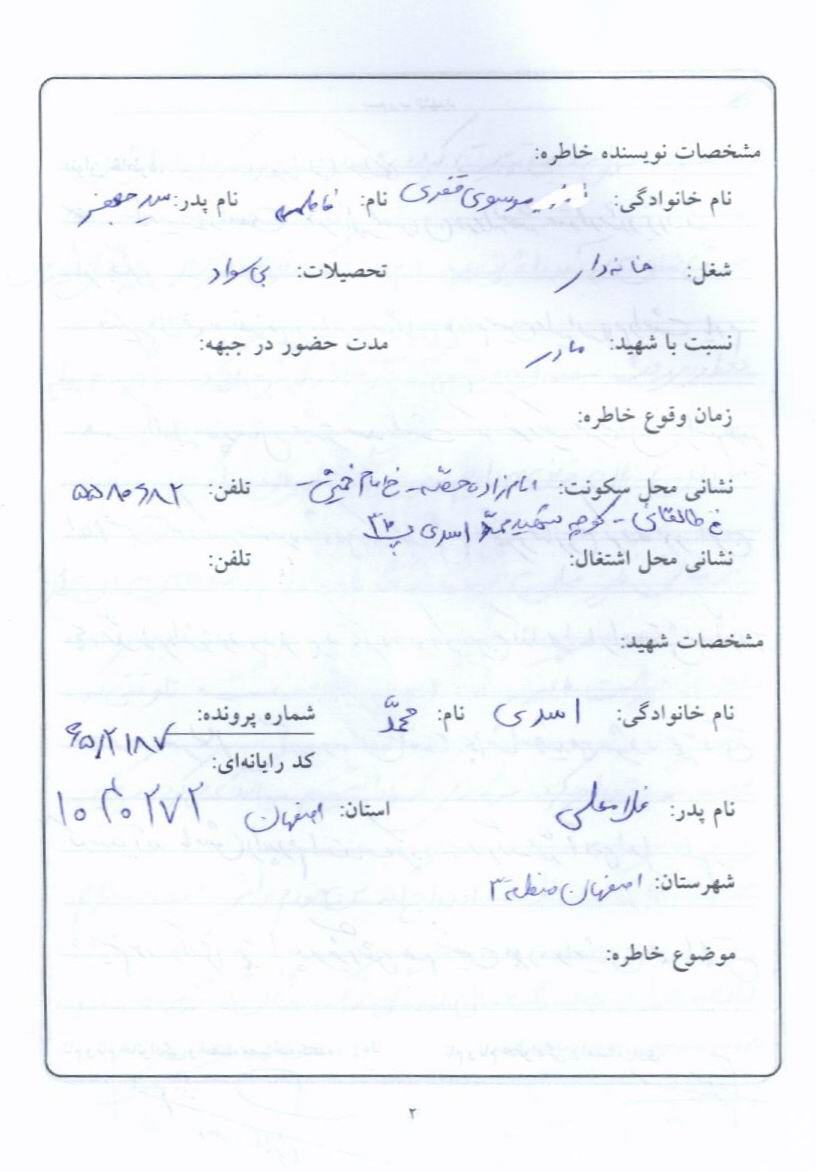 مشخصات نویسنده خاطره:
نام خانوادگی: موسوی قفری نام: فاطمه نام پدر: سید جعفر
شغل: خانه دار تحصیلات: بی سواد
نسبت با شهید: مادر مدت حضور در جبهه:
زمان وقوع خاطره:
نشانی محل سکونت: امامزاده خ امام خمینی - تلفن: ۵۵۸۰۶۸۲
خ طالقانی - کوچه شهید محمد اسدی پ ۳۰
نشانی محل اشتغال: تلفن:
مشخصات شهید:
نام خانوادگی: اسدی نام: محمّد شماره پرونده: ۶۵/۲۱۸۷
کد رایانه‌ای:
نام پدر: غلامعلی استان: اصفهان
شهرستان: اصفهان منطقه ۳
موضوع خاطره:
۲